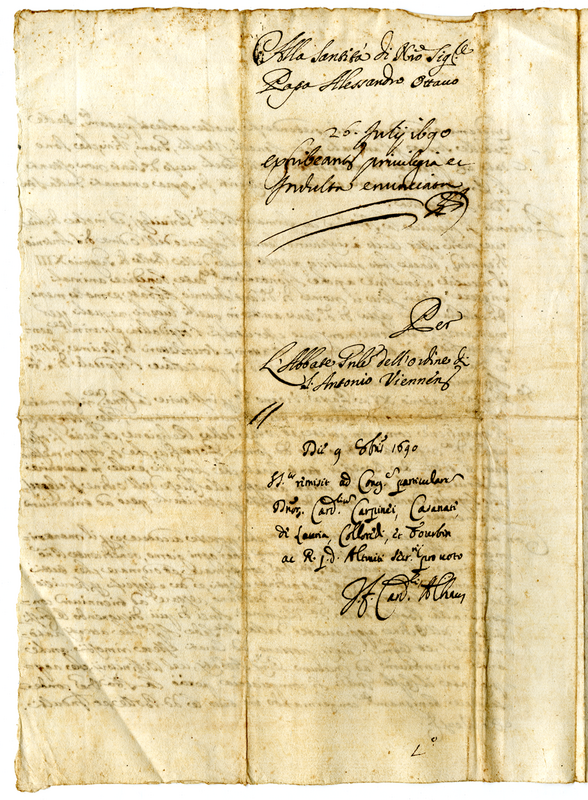 Alla Santità di N̄ro Sig.re
Papa Alessandro Ottavo
26. Julij 1690
exhibeantr privilegia et
Indulta enunciata
Per
L'Abbate Gn̄le dell'ordine di
S. Antonio Viennens
Die 9 1690
SS.us remisit ad Cong.m particularem
Card.lium Carpinei, Casanati,
di Lauria, Colloredi, et
ac R. p. d. Altoviti Secr.rij pro voto
Card.lis Alban